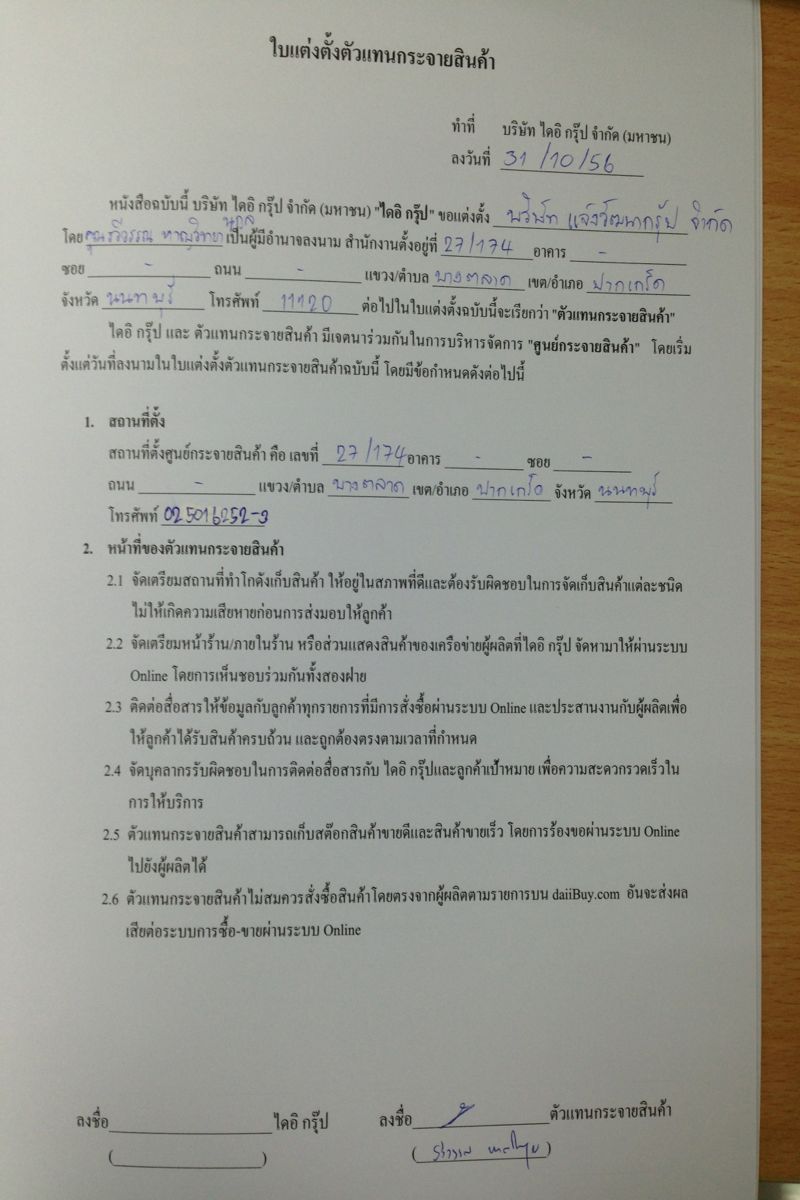 ใบแต่งตั้งตัวแทนกระจายสินค้า
ทำที่ บริษัท ไดอิ กรุ๊ป จำกัด (มหาชน)
ลงวันที่ 31/10/56
หนังสือฉบับนี้ บริษัท ไดอิ กรุ๊ป จำกัด (มหาชน) "ไดอิ กรุ๊ป" ขอแต่งตั้ง บริษัท แจ้งวัฒนากรุ๊ป จำกัด
โดย คุณ เป็นผู้มีอำนาจลงนาม สำนักงานตั้งอยู่ที่ 27/174 อาคาร -
ซอย - ถนน - แขวง/ตำบล บางตลาด เขต/อำเภอ ปากเกร็ด
จังหวัด นนทบุรี โทรศัพท์ 11120 ต่อไปในใบแต่งตั้งฉบับนี้จะเรียกว่า "ตัวแทนกระจายสินค้า"
ไดอิ กรุ๊ป และ ตัวแทนกระจายสินค้า มีเจตนาร่วมกันในการบริหารจัดการ "ศูนย์กระจายสินค้า" โดยเริ่ม
ตั้งแต่วันที่ลงนามในใบแต่งตั้งตัวแทนกระจายสินค้าฉบับนี้ โดยมีข้อกำหนดดังต่อไปนี้
1. สถานที่ตั้ง
สถานที่ตั้งศูนย์กระจายสินค้า คือ เลขที่ 27/174 อาคาร - ซอย -
ถนน - แขวง/ตำบล บางตลาด เขต/อำเภอ ปากเกร็ด จังหวัด นนทบุรี
โทรศัพท์ 025016252-3
2. หน้าที่ของตัวแทนกระจายสินค้า
2.1 จัดเตรียมสถานที่ทำโกดังเก็บสินค้า ให้อยู่ในสภาพที่ดีและต้องรับผิดชอบในการจัดเก็บสินค้าแต่ละชนิด
ไม่ให้เกิดความเสียหายก่อนการส่งมอบให้ลูกค้า
2.2 จัดเตรียมหน้าร้าน/ภายในร้าน หรือส่วนแสดงสินค้าของเครือข่ายผู้ผลิตที่ไดอิ กรุ๊ป จัดหามาให้ผ่านระบบ
Online โดยการเห็นชอบร่วมกันทั้งสองฝ่าย
2.3 ติดต่อสื่อสารให้ข้อมูลกับลูกค้าทุกรายการที่มีการสั่งซื้อผ่านระบบ Online และประสานงานกับผู้ผลิตเพื่อ
ให้ลูกค้าได้รับสินค้าครบถ้วน และถูกต้องตรงตามเวลาที่กำหนด
2.4 จัดบุคลากรรับผิดชอบในการติดต่อสื่อสารกับ ไดอิ กรุ๊ปและลูกค้าเป้าหมาย เพื่อความสะดวกรวดเร็วใน
การให้บริการ
2.5 ตัวแทนกระจายสินค้าสามารถเก็บสต๊อกสินค้าขายดีและสินค้าขายเร็ว โดยการร้องขอผ่านระบบ Online
ไปยังผู้ผลิตได้
2.6 ตัวแทนกระจายสินค้าไม่สมควรสั่งซื้อสินค้าโดยตรงจากผู้ผลิตตามรายการบน daiiBuy.com อันจะส่งผล
เสียต่อระบบการซื้อ-ขายผ่านระบบ Online
ลงชื่อ ไดอิ กรุ๊ป ลงชื่อ ตัวแทนกระจายสินค้า
( ) ( )